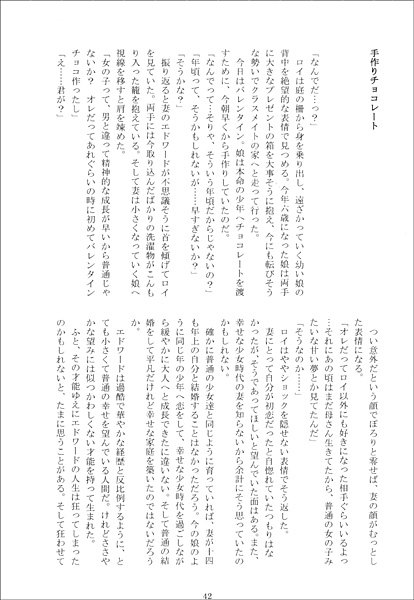 手作りチョコレート
「なんでだ…っ？」
　ロイは庭の柵から身を乗り出し、遠ざかっていく幼い娘の
背中を絶望的な表情で見つめる。今年六歳になった娘は両手
に大きなプレゼントの箱を大事そうに抱え、今にも転びそう
な勢いでクラスメイトの家へと走って行った。
　今日はバレンタイン。娘は本命の少年へチョコレートを渡
すために、今朝早くから手作りしていたのだ。
「なんでって…そりゃ、そういう年頃だからじゃないの？」
「年頃って、そうかもしれないが……早すぎないか？」
「そうかな？」
　振り返ると妻のエドワードが不思議そうに首を傾げてロイ
を見ていた。両手には今取り込んだばかりの洗濯物がこんも
り入った籠を抱えている。そして妻は小さくなっていく娘へ
視線を移すと肩を竦めた。
「女の子って、男と違って精神的な成長が早いから普通じゃ
ないか？　オレだってあれぐらいの時に初めてバレンタイン
チョコ作ったし」
「え……君が？」
　つい意外だという顔でぽろりと零せば、妻の顔がむっとし
た表情になる。
「オレだってロイ以外にも好きになった相手ぐらいいるよっ
…それにあの頃はまだ母さん生きてたから、普通の女の子み
たいな甘い夢とか見てたんだ」
「そうなのか……」
　ロイはややショックを隠せない表情でそう返した。
　妻にとって自分が初恋だったと自惚れていたつもりはな
かったが、そうであってほしいと望んでいた面はある。また、
幸せな少女時代の妻を知らないから余計にそう思っていたの
かもしれない。
　確かに普通の少女達と同じように育っていれば、妻が十四
も年上の自分と結婚することはなかっただろう。今の娘のよ
うに同じ年の少年へ恋をして、幸せな少女時代を過ごしなが
ら緩やかに大人へと成長できたに違いない。そして普通の結
婚をして平凡だけれど幸せな家庭を築いたのではないだろう
か。
　エドワードは過酷で華やかな経歴と反比例するように、と
ても小さくて普通の幸せを望んでいる人間だ。けれどささや
かな望みには似つかわしくない才能を持って生まれた。
　ふと、その才能ゆえにエドワードの人生は狂ってしまった
のかもしれないと、たまに思うことがある。そして狂わせて
42